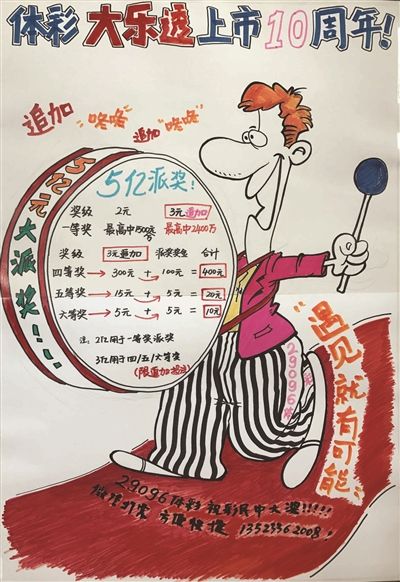 体彩大乐透上市10周年！
追加 "咚咚"
追加 "咚咚"
5亿元大派奖！！！
5亿派奖！
奖级 2元 3元追加
一等奖 最高中1500万 最高中2400万
奖级 3元追加 派奖奖金 合计
四等奖 → 300元 + 100元 = 400元
五等奖 → 15元 + 5元 = 20元
六等奖 → 5元 + 5元 = 10元
注：2亿用于一等奖派奖
3亿用于四/五/六等奖
(限追加投注)
29096体彩
遇见就有可能
29096体彩 祝彩民中大奖！！！！！
微信打票 方便快捷